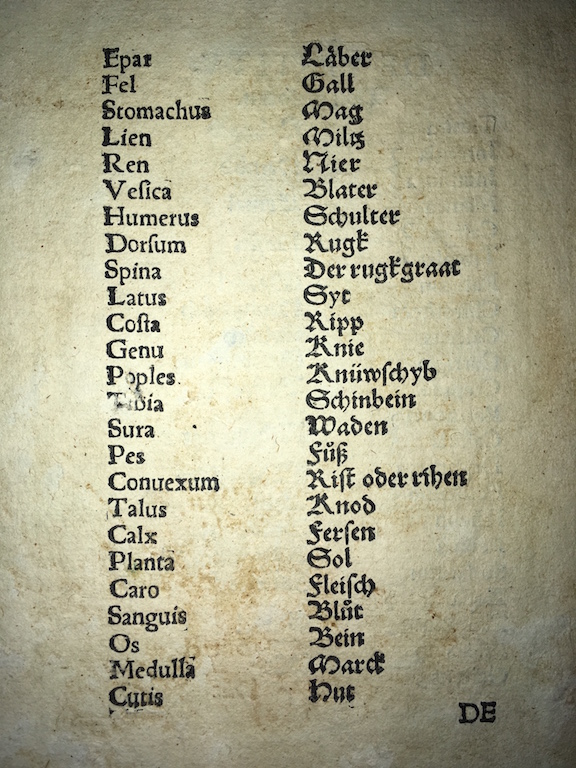 Epar Laͤber
Fel Gall
Stomachus Mag
Lien Miltz
Ren Nier
Veſica Blater
Humerus Schulter
Dorſum Rugk
Spina Der rugkgraat
Latus Syt
Coſta Ripp
Genu Knie
Poples Knüwſchyb
Tibia Schinbein
Sura Waden
Pes Fuͦß
Conuexum Riſt oder rihen
Talus Knod
Calx Ferſen
Planta Sol
Caro Fleiſch
Sanguis Bluͦt
Os Bein
Medulla Marck
Cutis Hut
DE